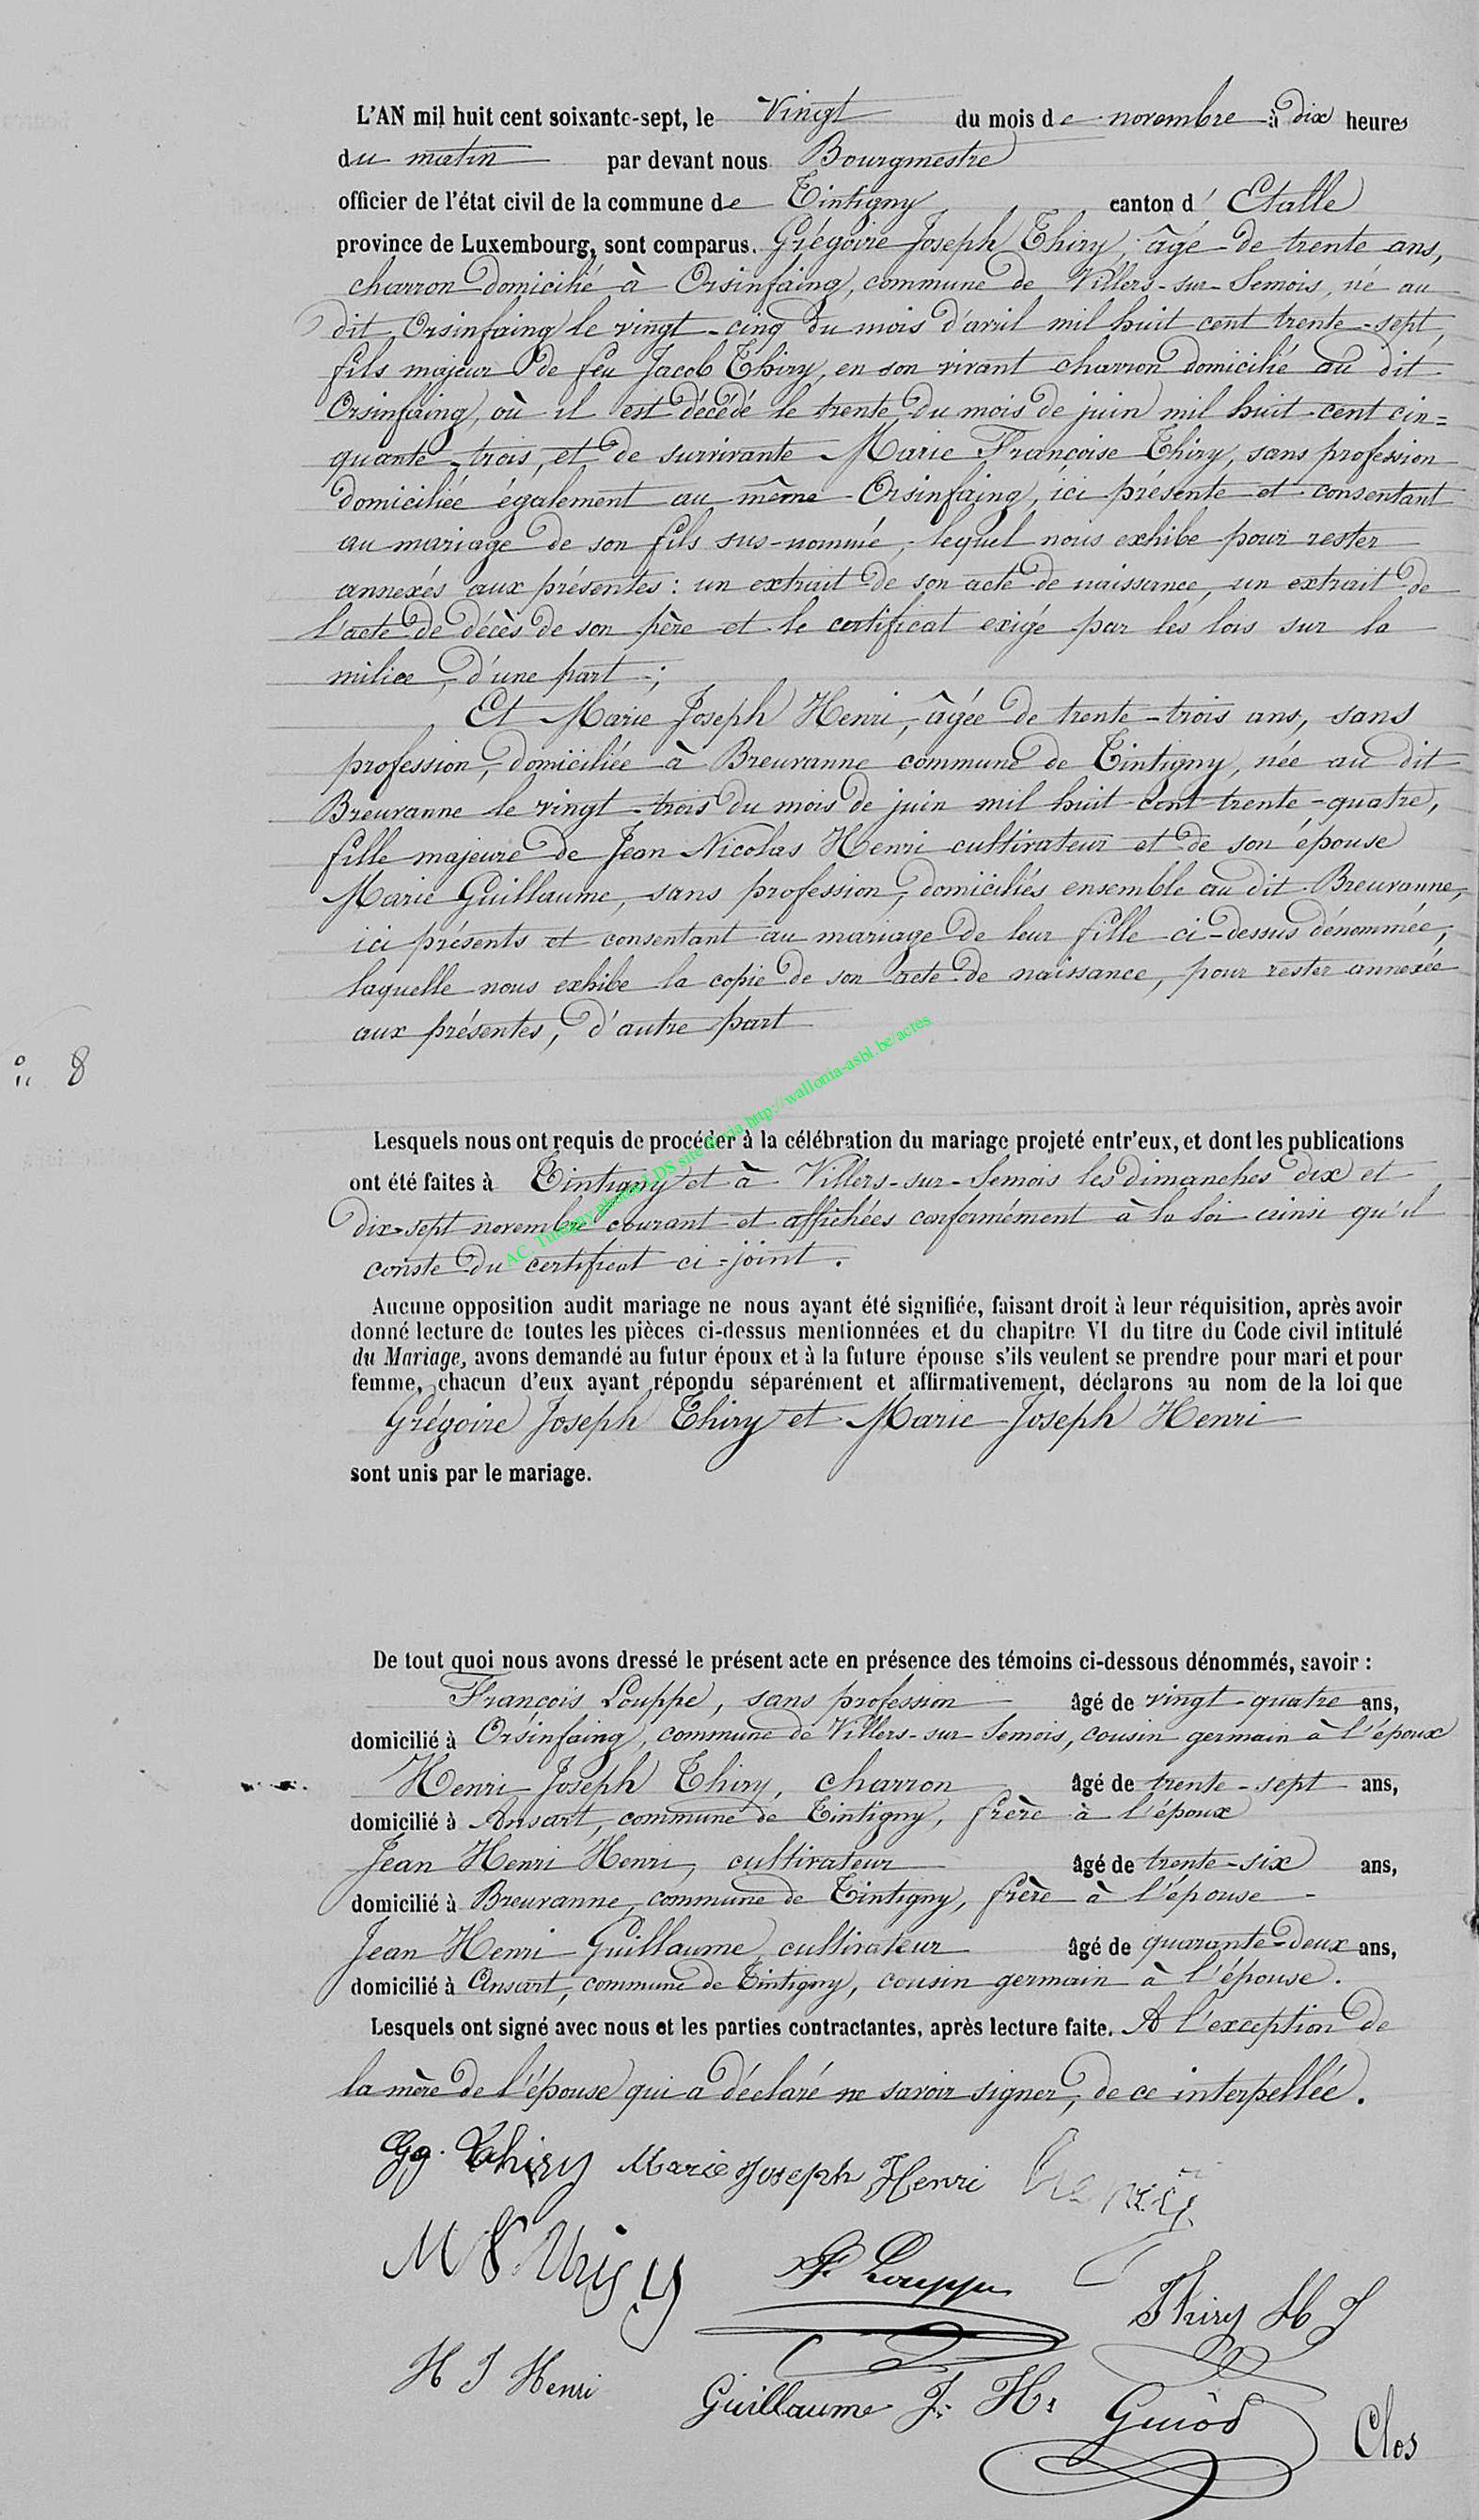 L'AN mil huit cent soixante-sept, le Vingt du mois de novembre à dix heures
du matin par devant nous Bourgmestre
officier de l'état civil de la commune de Tintigny canton d' Etalle
province de Luxembourg, sont comparus. Grégoire Joseph Thiry, âgé de trente ans,
charron domicilié à Orsinfaing, commune de Villers-sur-Semois, né au
dit Orsinfaing le vingt-cinq du mois d'avril mil huit cent trente-sept,
fils majeur de feu Jacob Thiry, en son vivant charron domicilié au dit
Orsinfaing, où il est décédé le trente du mois de juin mil huit cent cin=
quante-trois, et de survivante Marie Françoise Thiry, sans profession
domiciliée également au même Orsinfaing, ici présente et consentant
au mariage de son fils sus-nommé, lequel nous exhibe pour rester
annexés aux présentes : un extrait de son acte de naissance, un extrait de
l'acte de décès de son père et le certificat exigé par les lois sur la
milice, d'une part ;
Et Marie Joseph Henri, âgée de trente-trois ans, sans
profession, domiciliée à Breuvanne commune de Tintigny, née au dit
Breuvanne le vingt-trois du mois de juin mil huit cent trente-quatre,
fille majeure de Jean Nicolas Henri cultivateur et de son épouse
Marie Guillaume, sans profession, domiciliés ensemble au dit Breuvanne,
ici présents et consentant au mariage de leur fille ci-dessus dénommée,
laquelle nous exhibe la copie de son acte de naissance, pour rester annexée
aux présentes, d'autre part
8
Lesquels nous ont requis de procéder à la célébration du mariage projeté entr'eux, et dont les publications
ont été faites à Tintigny et à Villers-sur-Semois les dimanches dix et
dix-sept novembre courant et affichées conformément à la loi ainsi qu'il
conste du certificat ci-joint.
via http://wallonia-asbl.be/actes
Aucune opposition audit mariage ne nous ayant été signifiée, faisant droit à leur réquisition, après avoir
donné lecture de toutes les pièces ci-dessus mentionnées et du chapitre VI du titre du Code civil intitulé
du Mariage, avons demandé au futur époux et à la future épouse s'ils veulent se prendre pour mari et pour
femme, chacun d'eux ayant répondu séparément et affirmativement, déclarons au nom de la loi que
Grégoire Joseph Thiry et Marie Joseph Henri
sont unis par le mariage.
De tout quoi nous avons dressé le présent acte en présence des témoins ci-dessous dénommés, savoir :
François Louppe, sans profession âgé de vingt-quatre ans,
domicilié à Orsinfaing, commune de Villers-sur-Semois, cousin germain à l'époux
Henri Joseph Thiry, charron âgé de trente-sept ans,
domicilié à Ansart, commune de Tintigny, frère à l'époux
Jean Henri Henri, cultivateur âgé de trente-six ans,
domicilié à Breuvanne, commune de Tintigny, frère à l'épouse
Jean Henri Guillaume, cultivateur âgé de quarante-deux ans,
domicilié à Ansart, commune de Tintigny, cousin germain à l'épouse.
Lesquels ont signé avec nous et les parties contractantes, après lecture faite. A l'exception de
la mère de l'épouse qui a déclaré ne savoir signer, de ce interpellée.
Gg. Thiry Marie Joseph Henri
F Louppe
Thiry H J
H J Henri Guillaume J. H.
Clos